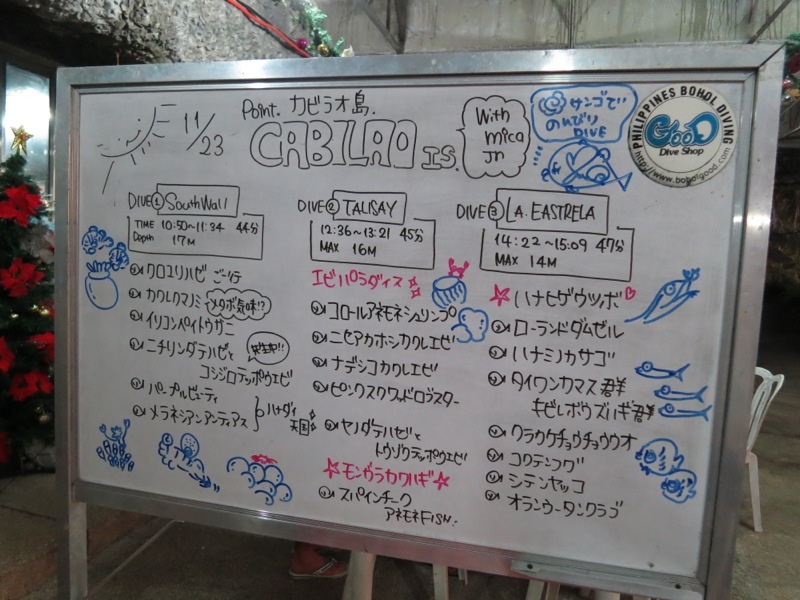 11/23
Point. カビラオ島.
CABILAO IS.
With
mica
jn
サンゴで
のんびり
DIVE
PHILIPPINES BOHOL DIVING
GooD
Dive Shop
http://www.boholgood.com
DIVE① South Wall
TIME 10:50~11:34 44分
Depth 17M
クロユリハゼ
カクレクマノミ メタボ気味!?
イソコンペイトウガニ
ニチリンダテハゼと
コシジロテッポウエビ
パープルビューティ
メラネシアンアンティアス
ハナダイ
天国
DIVE② TALISAY
12:36~13:21 45分
MAX 16M
エビパラダイス
コロールアネモネシュリンプ
ニセアカホシカクレエビ
ナデシコカクレエビ
ピンクスクワッドロブスター
ヤノダテハゼと
トウゾクテッポウエビ
☆モンウラカワハギ☆
スパインチーク
アネモネFISH.
DIVE③ A. EASTRELA
14:22~15:09 47分
MAX 14M
☆ハナヒゲウツボ♡
ローランドダムゼル
ハナミノカサゴ
タイワンカマス群
キビレボウズハギ群
クラカケチョウチョウウオ
コクテンフグ
シテンヤッコ
オランウータンクラブ